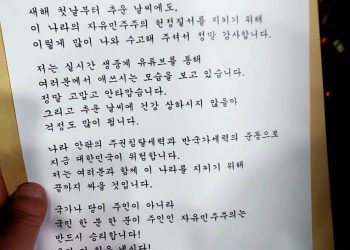 새해 첫날부터 추운 날씨에도,
이 나라의 자유민주주의 헌정질서를 지키기 위해
이렇게 많이 나와 수고해 주셔서 정말 감사합니다.
저는 실시간 생중계 유튜브를 통해
여러분께서 애쓰시는 모습을 보고 있습니다.
정말 고맙고 안타깝습니다.
그리고 추운 날씨에 건강 상하시지 않을까
걱정도 많이 됩니다.
나라 안팎의 주권침탈세력과 반국가세력의 준동으로
지금 대한민국이 위험합니다.
저는 여러분과 함께 이 나라를 지키기 위해
끝까지 싸울 것입니다.
국가나 당이 주인이 아니라
국민 한 분 한 분이 주인인 자유민주주의는
반드시 승리합니다!